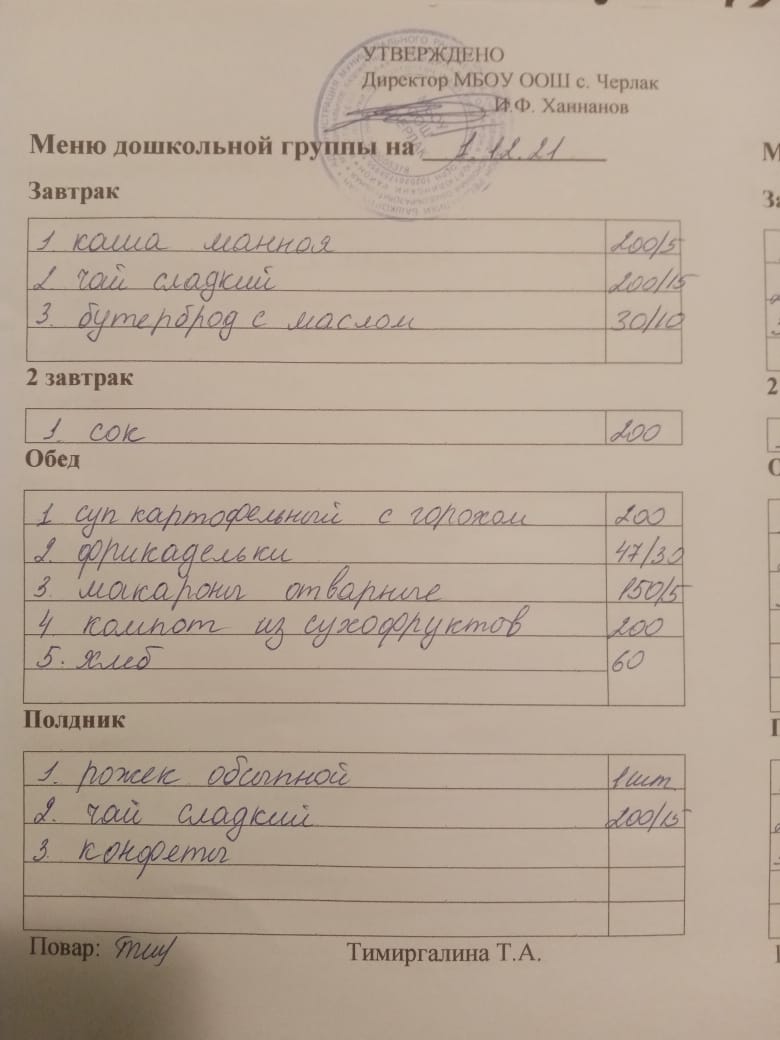 УТВЕРЖДЕНО
Директор МБОУ ООШ с. Черлак
И.Ф. Ханнанов
Меню дошкольной группы на 1.12.21
Завтрак
1. каша манная 200/5
2 чай сладкий 200/15
3. бутерброд с маслом 30/10
2 завтрак
1. сок 200
Обед
1 суп картофельный с горохом 200
2. фрикадельки 47/30
3. макароны отварные 150/5
4 компот из сухофруктов 200
5. хлеб 60
Полдник
1. рожек обсыпной 1шт.
2. чай сладкий 200/15
3. конфеты
Повар: Тимиргалина Т.А.